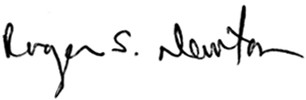 Roger S. Newton